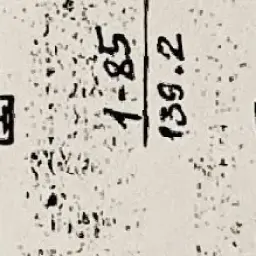 1-85
139.2